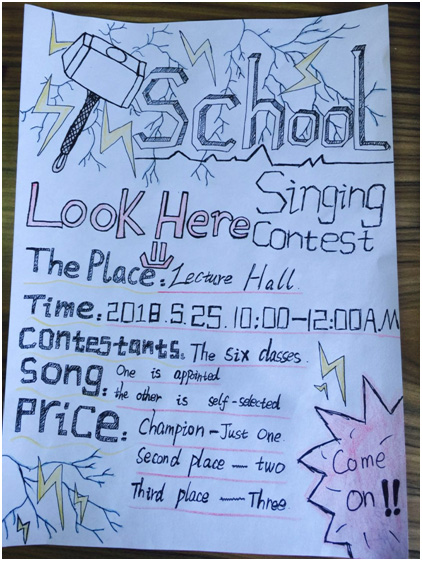 School
Look Here
Singing
Contest
The Place: Lecture Hall.
Time: 2018.5.25. 10:00-12:00A.M
Contestants: The six classes.
Song: One is appointed
the other is self-selected
Price: Champion - Just One.
Second place — two
Third place — Three
Come
On!!